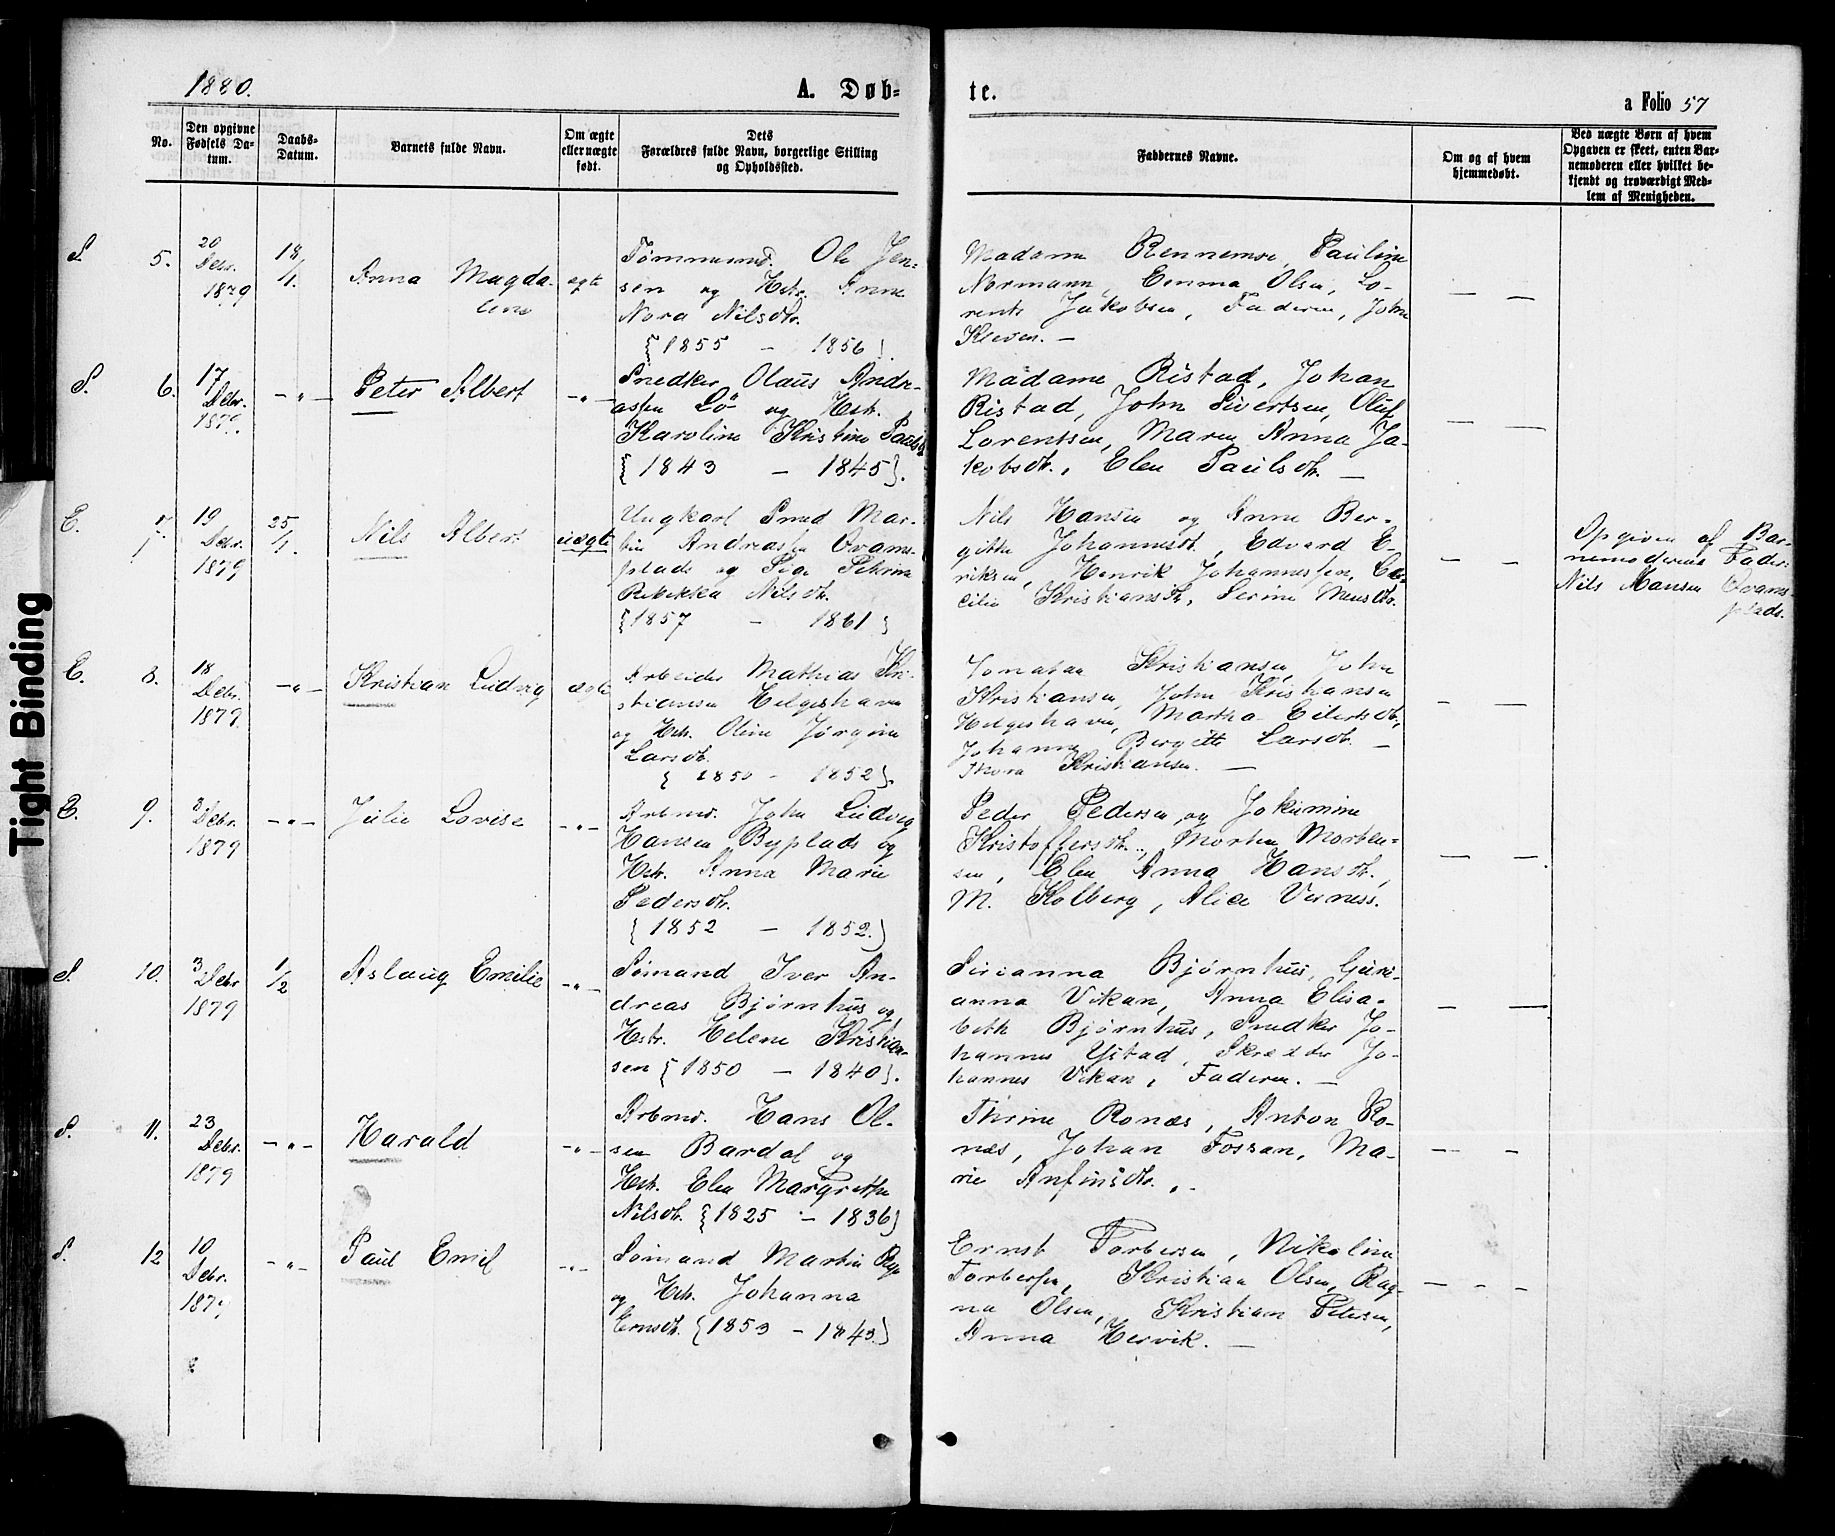 1880.
A. Døb-
te.
a Folio 57
No.
Den opgivne
Fødsels Da-
tum.
Daabs-
Datum.
Barnets fulde Navn.
Om ægte
eller uægte
født.
Dets
Forældres fulde Navn, borgerlige Stilling
og Opholdssted.
Faddernes Navne.
Om og af hvem
hjemmedøbt.
Ved uægte Børn af hvem
Opgaven er skeet, enten Bar-
nemoderen eller hvilket be-
kjendt og troværdigt Med-
lem af Menigheden.
S. 5.
20
Debr.
1879
18
/1.
Anna Magda-
lene
ægte
Tømmermd. Ole Jen-
sen og Hstr. Anne
Nora Nilsdtr.
{1855 - 1856}.
Madame Rennemse, Pauline
Normann, Emma Olsen, Lo-
rents Jakobsen, Faderen, John
Kleven. —
— —
S. 6.
17
Debr.
1879.
— " —
Peter Albert
— " —
Snedker Olaus Andr-
assen Lö og Hstr.
Karoline Kristine Paulsd
{1843 - 1845}.
Madame Ristad, Johan
Ristad, John Sivertsen, Oluf
Lorentsen, Maren Anna Ja-
kobsdtr., Elen Paulsdtr. —
— —
E. 7.
19
Debr.
1879
25
/1.
Nils Albert
uægte
Ungkarl Smed Mar-
tin Andreassen Qvams-
plads og Pige Petrine
Rebekka Nilsdtr.
{1857 - 1861}
Nils Hansen og Anne Ber-
gitte Johannesdtr, Edvard E-
riksen, Henrik Johannessen, Ce-
cilie Kristiansdtr, Serine Monsdtr.
— —
Opgiven af Bar-
nemoderens Fader
Nils Hansen Qvams-
plads.
E. 8.
18
Debr.
1879.
— " —
Kristian Ludvig
ægte
Arbeider Mathias Kri-
stiansen Helgeshavn
og Hstr. Oline Jørgine
Larsdtr.
{1850 - 1852}.
Jonatan Kristiansen, John
Kristiansen, John Kristiansen
Helgeshavn, Martha Eilertsdtr,
Johanna Bergitte Larsdtr. —
Thora Kristiansen. —
— —
E. 9.
3
Debr.
1879
— " —
Julie Lovise
— " —
Arbmd. John Ludvig
Hansen Byplads og
Hstr. Anna Marie
Pedersdtr.
{1852 - 1852.}
Peder Pedersen og Jokumine
Kristoffersdtr., Morten Morten-
sen, Elen Anna Hansdtr.,
M. Kolberg, Alice Verness.
— —.
S. 10.
3
Debr
1879
1
/2
Aslaug Emilie
— " —
Sømand Iver An-
dreas Bjørnhus og
Hstr. Helene Kristian-
sen {1850 - 1840}.
Sirianna Bjørnhus, Guri-
anna Vikan, Anna Elisa-
beth Bjørnhus, Snedker Jo-
hannes Ystad, Skrædder Jo-
hannes Vikan, Faderen. —
— —
S. 11.
23
Debr.
1879
— " —
Harald
— " —
Arbmd. Hans Ol-
sen Bardal og
Hstr. Elen Margrethe
Nilsdtr. {1825 - 1836}
Thrine Ronæs, Anton Ro-
næs, Johan Fossan, Ma-
rie Anfinsdtr. „
— —
S. 12
10
Debr.
1879
— " —
Paul Emil
— " —
Sømand Martin
og Hstr. Johanna
Ernsdtr. {1853 - 1843}
Ernst Torbersen, Nikoline
Torbersen, Kristian Olsen, Rag-
na Olsen, Kristian Petersen,
Anna Hervik. —
— —
Tight Binding